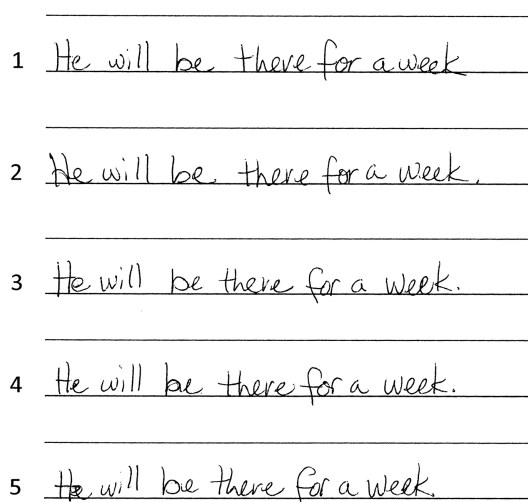 1 He will be there for a week
2 He will be there for a week.
3 He will be there for a week.
4 He will be there for a week.
5 He will be there for a week.